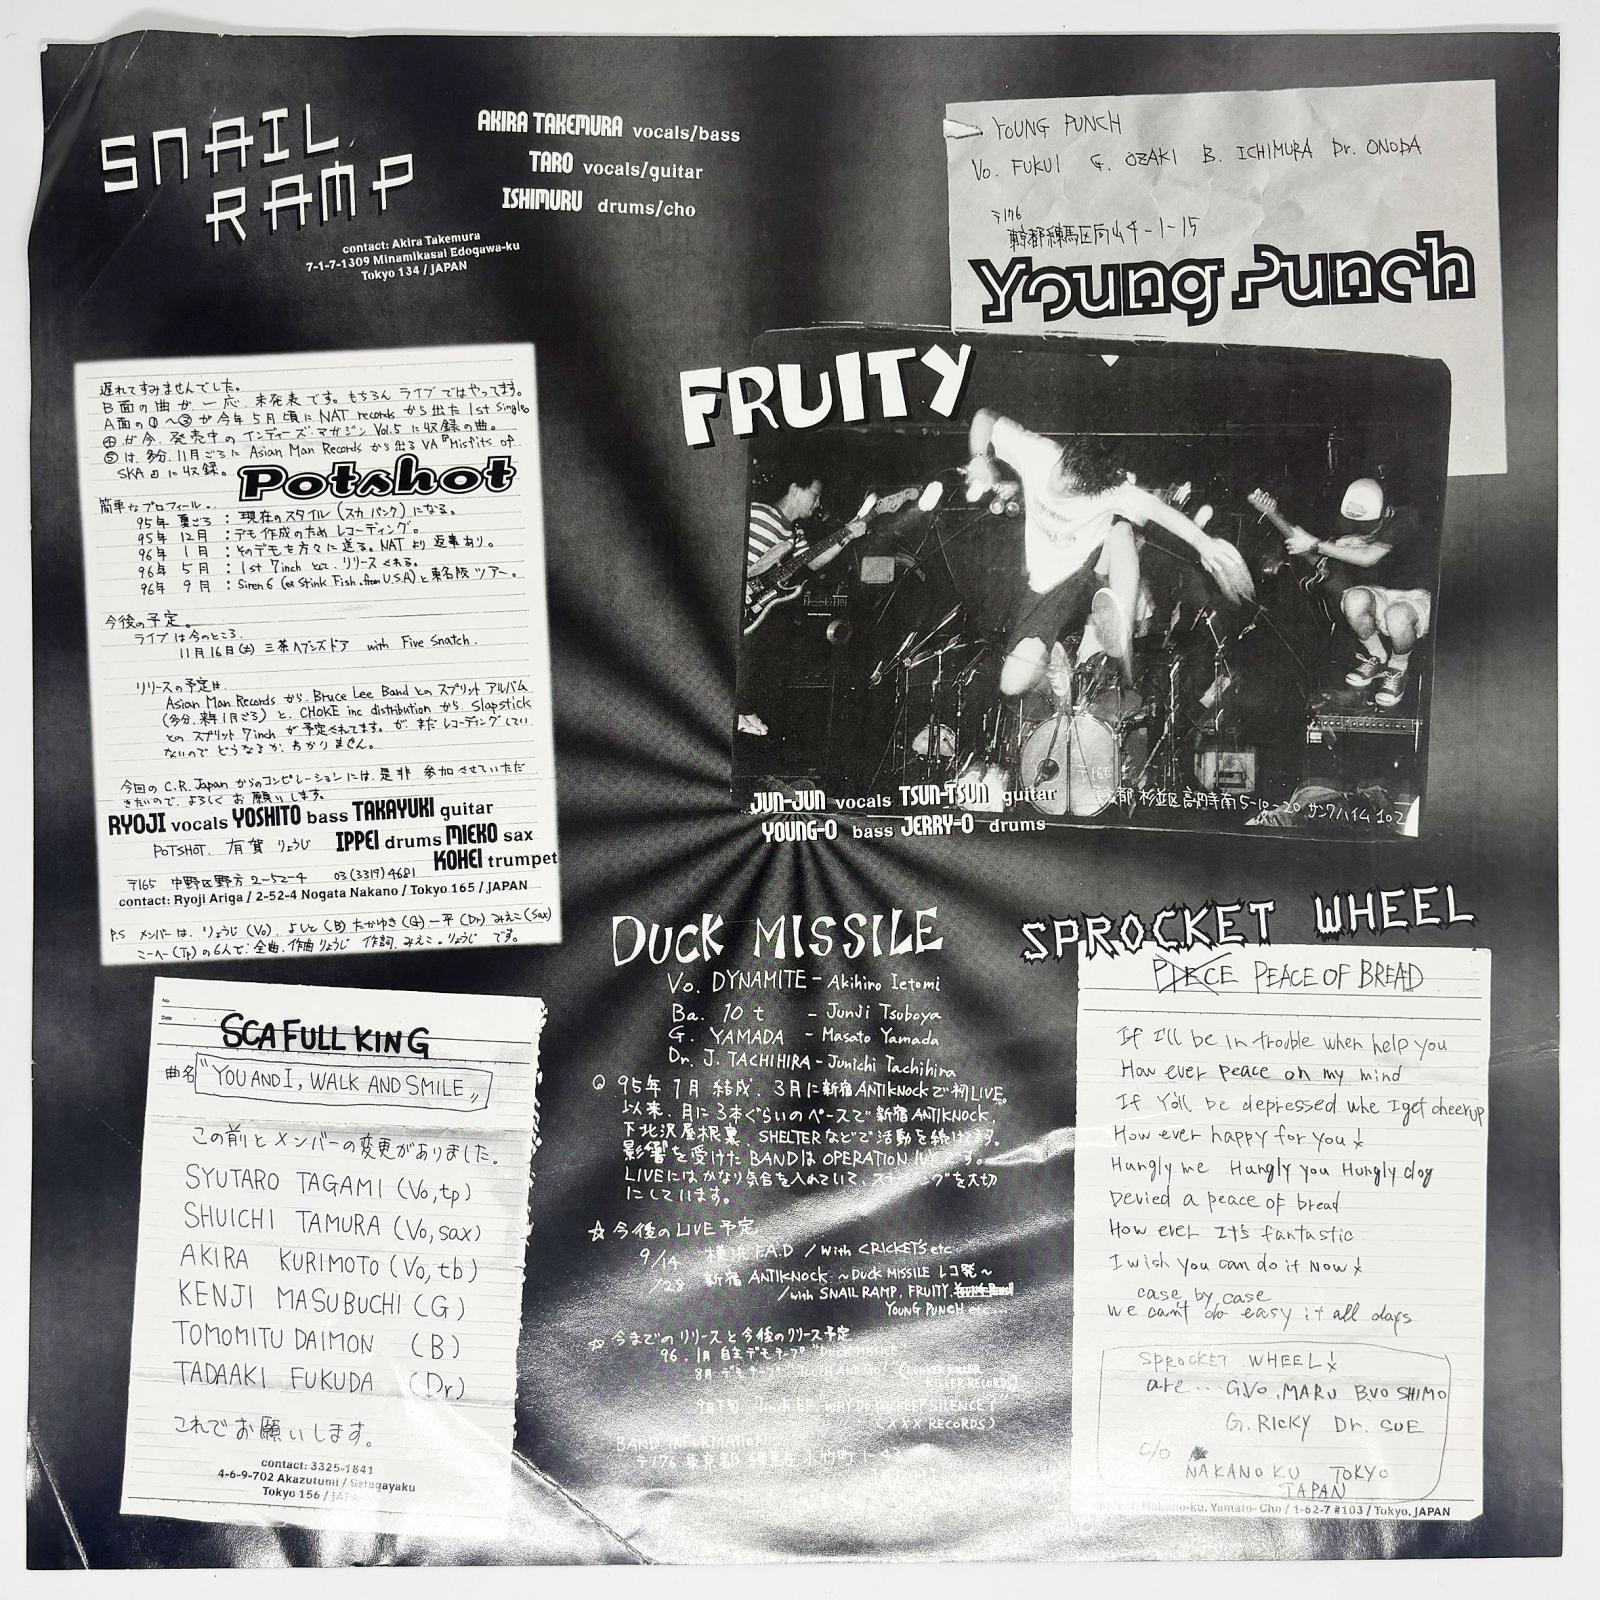 SNAIL
RAMP
AKIRA TAKEMURA vocals/bass
TARO vocals/guitar
ISHIMURU drums/cho
contact: Akira Takemura
7-1-7-1309 Minamikasai Edogawa-ku
Tokyo 134 / JAPAN
YOUNG PUNCH
Vo. FUKUI G. OZAKI B. ICHIMURA Dr. ONODA
〒176
東京都練馬区向山4-1-15
Young Punch
遅れてすみませんでした。
B面の曲が一応、未発表です。もちろんライブではやってます。
A面の①〜③が今年5月頃にNAT recordsから出た1st Single。
④が今、発売中のインディーズ・マガジンVol.5に収録の曲。
⑤は、多分、11月ごろに Asian Man Records から出るVA『Misfits of
SKA II』に収録。
Potshot
簡単なプロフィール。
95年 夏ごろ : 現在のスタイル(スカパンク)になる。
95年 12月 : デモ作成のためレコーディング。
96年 1月 : そのデモを方々に送る。NATより返事あり。
96年 5月 : 1st 7inchとして、リリースされる。
96年 9月 : Siren 6 (ex Stink Fish, from U.S.A)と東名阪ツアー。
今後の予定。
ライブは今のところ、
11月16日(土) 三茶ヘブンズドア with Five Snatch.
リリースの予定は、
Asian Man Records から、Bruce Lee Band とのスプリットアルバム
(多分、来年1月ごろ)と、CHOKE inc distribution から Slapstick
とのスプリット7inchが予定されてます。が、まだレコーディングしてい
ないのでどうなるか、わかりません。
今回のC.R.Japanからのコンピレーションには、是非、参加させていただ
きたいので、よろしくお願いします。
RYOJI vocals YOSHITO bass TAKAYUKI guitar
POTSHOT. 有賀 りょうじ IPPEI drums MIEKO sax
KOHEI trumpet
〒165 中野区野方2-52-4 03(3319)4681
contact: Ryoji Ariga / 2-52-4 Nogata Nakano / Tokyo 165 / JAPAN
P.S メンバーは、りょうじ(Vo)、よしと(B) たかゆき(G) 一平(Dr) みえこ(Sax)
こーへー(Tp)の6人で、全曲、作曲りょうじ 作詞、みえこ。りょうじ です。
FRUITY
JUN-JUN vocals TSUN-TSUN guitar
YOUNG-O bass JERRY-O drums
〒166
東京都杉並区高円寺南5-10-20 サンクハイム102
SCAFULL KING
曲名 "YOU AND I, WALK AND SMILE"
この前とメンバーの変更がありました。
SYUTARO TAGAMI (Vo,tp)
SHUICHI TAMURA (Vo,sax)
AKIRA KURIMOTO (Vo,tb)
KENJI MASUBUCHI (G)
TOMOMITU DAIMON (B)
TADAAKI FUKUDA (Dr)
これでお願いします。
contact: 3325-1841
4-6-9-702 Akazutumi / Setagayaku
Tokyo 156 / JAPAN
DUCK MISSILE
Vo. DYNAMITE - Akihiro Ietomi
Ba. 10 t - Junji Tsuboya
G. YAMADA - Masato Yamada
Dr. J. TACHIHIRA - Junichi Tachihira
95年1月結成、3月に新宿ANTIKNOCKで初LIVE。
以来、月に3本ぐらいのペースで新宿ANTIKNOCK、
下北沢屋根裏、SHELTERなどで活動を続けてます。
影響を受けたBANDはOPERATION IVYです。
LIVEにはかなり気合を入れていて、
にしています。
☆今後のLIVE予定
9/14 横浜F.A.D /with CRICKETS etc
/28 新宿ANTIKNOCK 〜DUCK MISSILE レコ発〜
/with SNAIL RAMP, FRUITY,
YOUNG PUNCH etc...
☆今までのリリースと今後のリリース予定
96.1月 自主デモテープ "DUCK MISSILE"
8月 デモテープ
KILLER RECORDS)
9月下旬 7inch EP "WHY DO YOU KEEP SILENCE?"
(XXX RECORDS)
BAND INFORMATION
〒176
SPROCKET WHEEL
PEACE OF BREAD
If I'll be in trouble when help you
How ever peace on my mind
If You'll be depressed whe I get cheerup
How ever happy for you!
Hungly me Hungly you Hungly dog
Devied a peace of bread
How ever It's fantastic
I wish you can do it Now!
case by case
we can't do easy it all days
SPROCKET WHEEL!
are... G.VO.MARU B.VO SHIMO
G.RICKY Dr. SUE
C/O
NAKANO KU TOKYO
JAPAN
contact: Nakano-ku. Yamato-Cho / 1-62-7 #103 / Tokyo. JAPAN